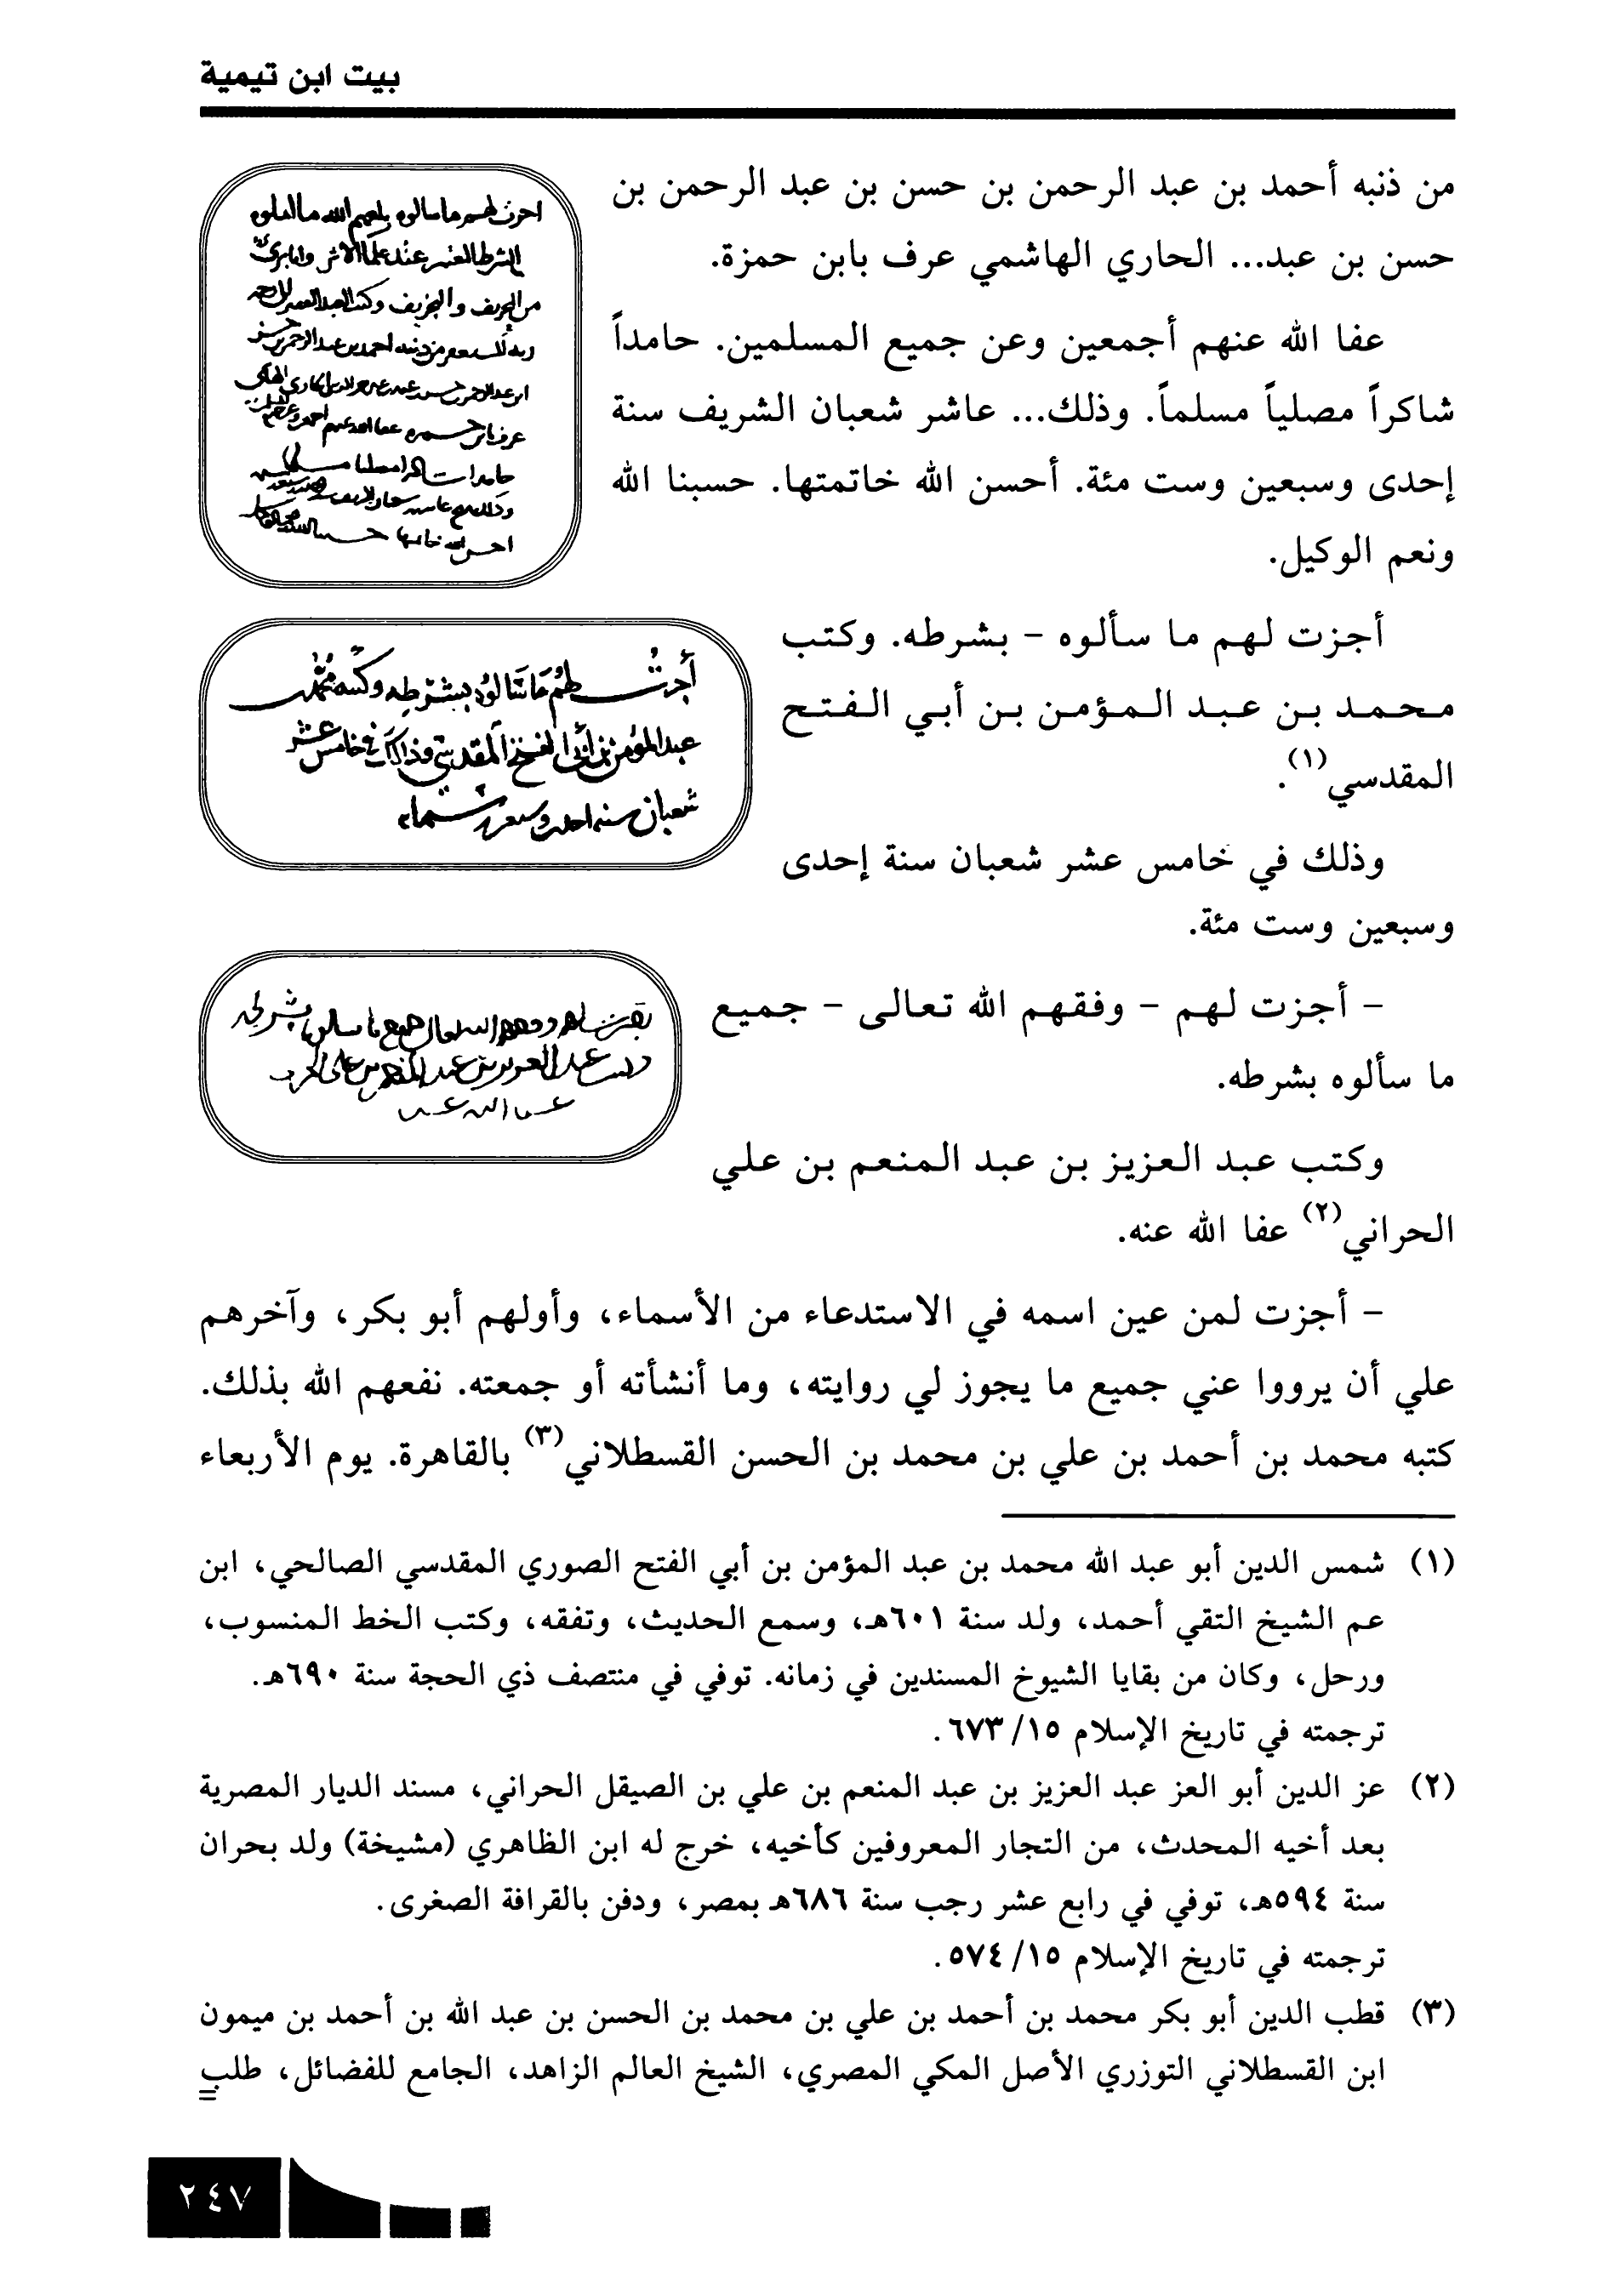 بيت ابن تيمية
من ذنبه أحمد بن عبد الرحمن بن حسن بن عبد الرحمن بن
حسن بن عبد... الحاري الهاشمي عرف بابن حمزة.
عفا الله عنهم أجمعين وعن جميع المسلمين. حامداً
شاكراً مصلياً مسلماً. وذلك... عاشر شعبان الشريف سنة
إحدى وسبعين وست مئة. أحسن الله خاتمتها. حسبنا الله
ونعم الوكيل.
أجزت لهم ما سألوه - بشرطه. وكتب
محمد بن عبد المؤمن بن أبي الفتح
المقدسي(١).
وذلك في خامس عشر شعبان سنة إحدى
وسبعين وست مئة.
أجزت لهم ما سألوه بشرطه وكتبه محمد بن
عبد المؤمن بن أبي الفتح المقدسي وذلك في خامس عشر
شعبان سنة احدى وسبعين وستمائة
- أجزت لهم - وفقهم الله تعالى - جميع
ما سألوه بشرطه.
وكتب عبد العزيز بن عبد المنعم بن علي
الحراني(٢) عفا الله عنه.
- أجزت لمن عين اسمه في الاستدعاء من الأسماء، وأولهم أبو بكر، وآخرهم
علي أن يرووا عني جميع ما يجوز لي روايته، وما أنشأته أو جمعته. نفعهم الله بذلك.
كتبه محمد بن أحمد بن علي بن محمد بن الحسن القسطلاني(٣) بالقاهرة. يوم الأربعاء
(١) شمس الدين أبو عبد الله محمد بن عبد المؤمن بن أبي الفتح الصوري المقدسي الصالحي، ابن
عم الشيخ التقي أحمد، ولد سنة ٦٠١هـ، وسمع الحديث، وتفقه، وكتب الخط المنسوب،
ورحل، وكان من بقايا الشيوخ المسندين في زمانه. توفي في منتصف ذي الحجة سنة ٦٩٠هـ.
ترجمته في تاريخ الإسلام ١٥/ ٦٧٣.
(٢) عز الدين أبو العز عبد العزيز بن عبد المنعم بن علي بن الصيقل الحراني، مسند الديار المصرية
بعد أخيه المحدث، من التجار المعروفين كأخيه، خرج له ابن الظاهري (مشيخة) ولد بحران
سنة ٥٩٤هـ، توفي في رابع عشر رجب سنة ٦٨٦هـ بمصر، ودفن بالقرافة الصغرى.
ترجمته في تاريخ الإسلام ١٥/ ٥٧٤.
(٣) قطب الدين أبو بكر محمد بن أحمد بن علي بن محمد بن الحسن بن عبد الله بن أحمد بن ميمون
ابن القسطلاني التوزري الأصل المكي المصري، الشيخ العالم الزاهد، الجامع للفضائل، طلب
=
٢٤٧